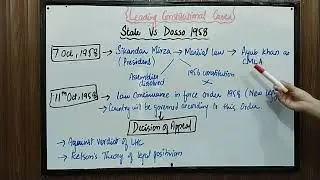 (Leading Constitutional Cases)
State Vs Dosso 1958
7 Oct, 1958 → Sikandar Mirza → Martial law → Ayub Khan as
(President) CMLA
Assemblies dissolved
1956 constitution
11th Oct, 1958 → Law Continuance in force order 1958 (New
→ Country will be governed according to this Order.
Decision of Appeal
→ Against verdict of LHC
→ Kelson's Theory of legal positivism